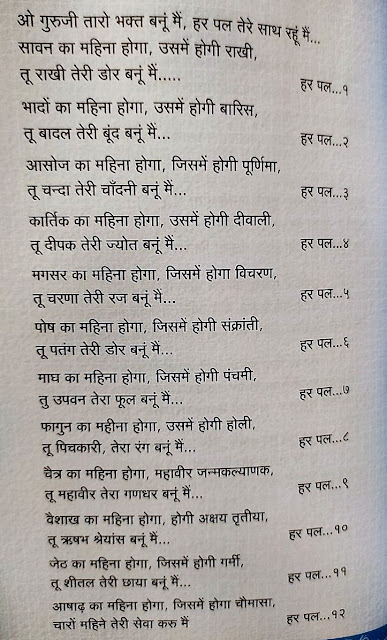 ओ गुरुजी तारो भक्त बनूं मैं, हर पल तेरे साथ रहूं मैं...
सावन का महिना होगा, उसमें होगी राखी,
तू राखी तेरी डोर बनूं मैं..... हर पल...१
भादों का महिना होगा, उसमें होगी बारिस,
तू बादल तेरी बूंद बनूं मैं... हर पल...२
आसोज का महिना होगा, जिसमें होगी पूर्णिमा,
तू चन्दा तेरी चाँदनी बनूं मैं... हर पल...३
कार्तिक का महिना होगा, उसमें होगी दीवाली,
तू दीपक तेरी ज्योत बनूं मैं... हर पल...४
मगसर का महिना होगा, जिसमें होगा विचरण,
तू चरणा तेरी रज बनूं मैं... हर पल...५
पोष का महिना होगा, जिसमें होगी संक्रांती,
तू पतंग तेरी डोर बनूं मैं... हर पल...६
माघ का महिना होगा, जिसमें होगी पंचमी,
तु उपवन तेरा फूल बनूं मैं... हर पल...७
फागुन का महीना होगा, उसमें होगी होली,
तू पिचकारी, तेरा रंग बनूं मैं... हर पल...८
चैत्र का महिना होगा, महावीर जन्मकल्याणक,
तू महावीर तेरा गणधर बनूं मैं... हर पल...९
वैशाख का महिना होगा, होगी अक्षय तृतीया,
तू ऋषभ श्रेयांस बनूं मैं... हर पल...१०
जेठ का महिना होगा, जिसमें होगी गर्मी,
तू शीतल तेरी छाया बनूं मैं... हर पल...११
आषाढ़ का महिना होगा, जिसमें होगा चौमासा,
चारों महिने तेरी सेवा करु मैं हर पल...१२